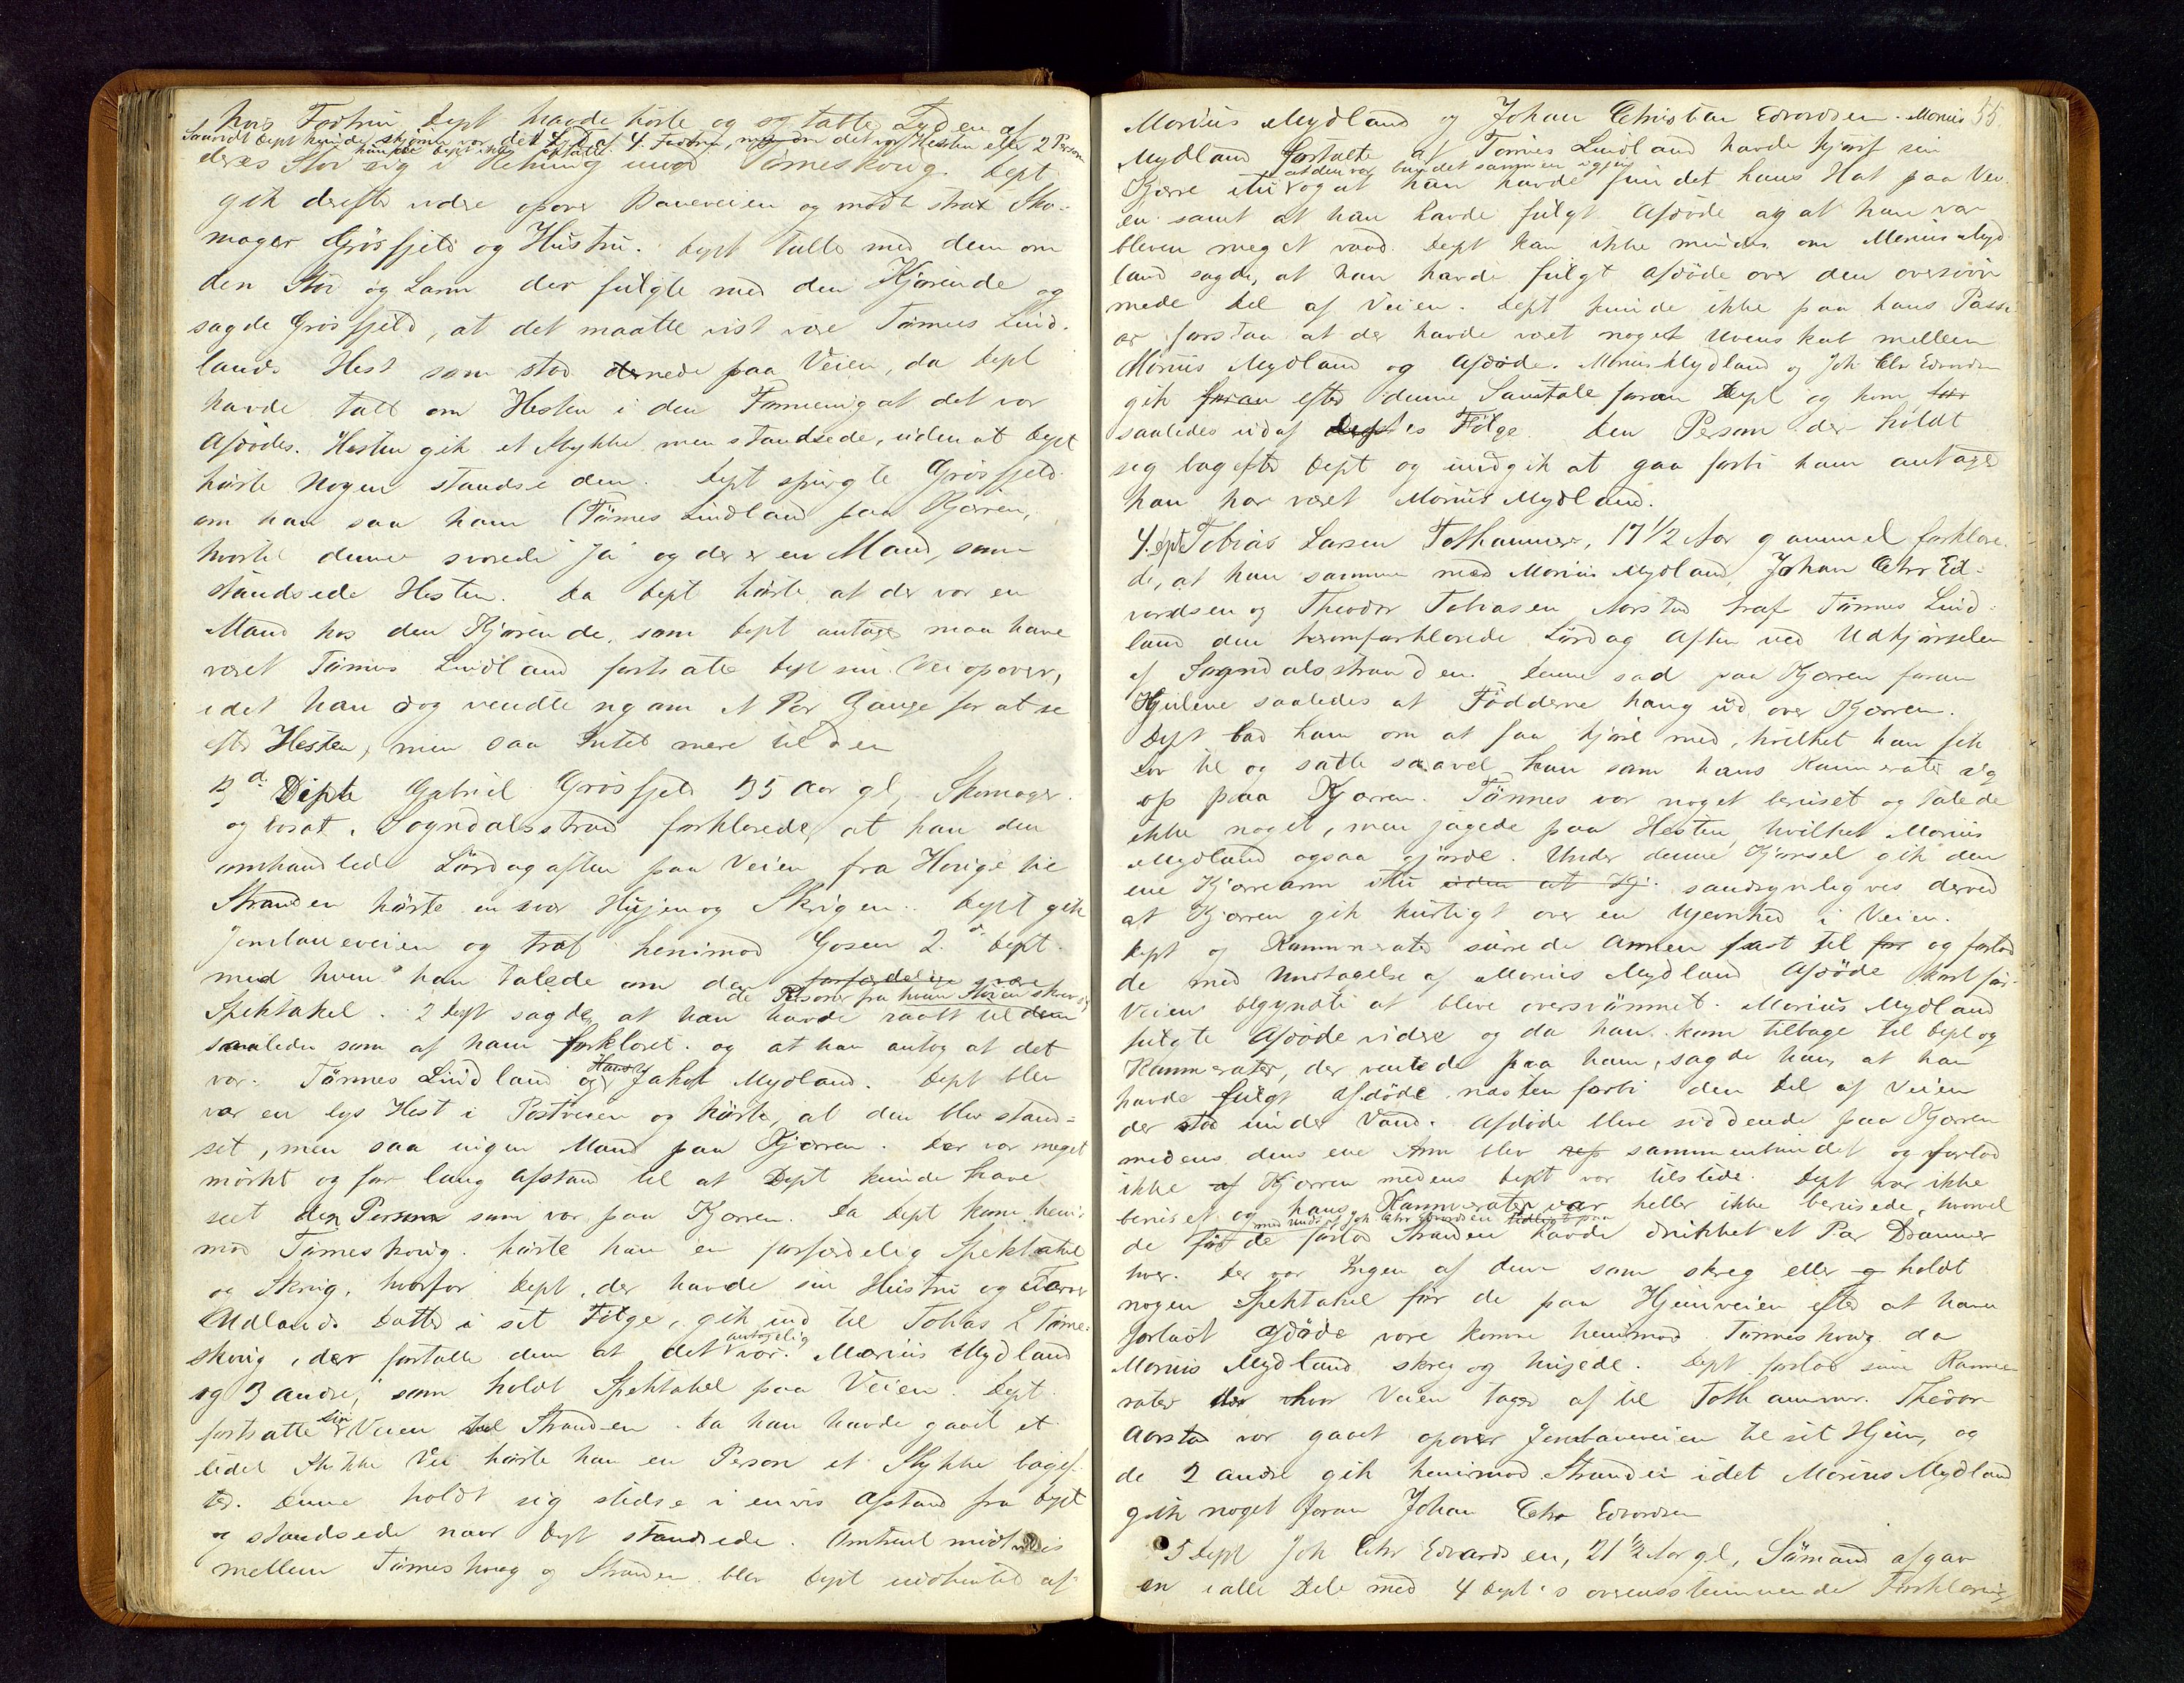 hvis Fodtrin Dept havde hørte og opfattet Lyden af
Saavidt Dept kunde skjønne var det Lyd af 4 Fodtrin, men om det var Hesten eller 2 Person
kunde Dept ikke opfatte
deres Støi sig i Retning mod Tømeshoug. Dept
gik derefter videre opover Baneveien og mødte strax Sko-
mager Grøsfjeld og Hustru. Dept talte med dem om
den Støi og Larm der fulgte med den Kjørende og
sagde Grøsfjeld, at det maatte vist være Tønnes Lind-
lands Hest som stod dernede paa Veien, da Dept
havde talt om Hesten i den Formening at det var
Afdødes. Hesten gik et Stykke men standsede, uden at Dept
hørte Nogen standse den. Dept spurgte Grøsfjeld
om han saa ham (Tønnes Lindland paa Kjærren,
hvortil denne svarede Ja og der er en Mand, som
standsede Hesten. Da Dept hørte at der var en
Mand hos den Kjørende, som Dept antager maa have
været Tønnes Lindland fortsatte Dept sin Vei opover,
idet han dog vendte sig om et Par Gange for at se
efter Hesten, men saa Intet mere til den
3d Depte Gabriel Grøsfjeld 35 Aar gl, Skomager
og bosat i Sogndalsstrand forklarede, at han den
omhandlede Lørdagaften paa Veien fra Hauge til
Stranden hørte en svær Hujen og Skrigen. Dept gik
Jernbaneveien og traf henimod Gosen 2d Dept
med hvem han talede om den forfærdelige svære
Spektakel. 2 Dept sagde, at han havde raabt til dem
de Personer fra hvem Støien skrev sig
saaledes som af ham forklaret. og at han antog at det
var Tønnes Lindland og Hans Jakob Mydland. Dept blev
var en lys Hest i Postveien og hørte at den blev stand-
set, men saa ingen Mand paa Kjærren. Der var meget
mørkt og for lang Afstand til at Dept kunde have
seet den Person som var paa Kjærren. Da Dept kom heni-
mod Tømeshoug hørte han en forfærdelig Spektakel
og Skrig, hvorfor Dept, der havde sin Hustru og
Udlands Datter i sit Følge, gik ind til Tobias L Tømes-
houg, der fortalte dem at det antagelig var Marius Mydland
og 3 andre, som holdt Spektakel paa Veien. Dept
fortsatte sin Veien til Stranden. Da han havde gaaet et
lidet Stykke Vei hørte han en Person et Stykke bagef-
ter. Denne holdt sig stedse i en vis Afstand fra Dept
og standsede naar Dept standsede. Omtrent midtveis
mellem Tømeshoug og Stranden blev Dept indhentet af
55
Marius Mydland og Johan Christian Edvardsen. Marius
Mydland fortalte at Tønnes Lindland havde kjørt sin
Kjærre itu og at den var bundet sammen igjen og at han havde fundet hans Hat paa Vei-
en samt at han havde fulgt Afdøde og at han var
bleven meget vaad. Dept kan ikke mindes om Marius Myd-
land sagde, at han havde fulgt Afdøde over den oversvøm-
mede Del af Veien. Dept kunde ikke paa hans Passi-
ar forstaa at der havde været noget Uvenskab mellem
Marius Mydland og Afdøde. Marius Mydland og Joh Chr Edvardsen
gik foran efter denne Samtale foran Dept og kom
saaledes ud af Deptes Følge. Den Person der holdt
sig bagefter Dept og undgik at gaa forbi ham antager
han har været Marius Mydland.
4. Dept Tobias Larsen Tothammer, 17 1/2 Aar gammel forklare-
de, at han sammen med Marius Mydland, Johan Chr Ed-
vardsen og Theodor Tobiasen Aarstad traf Tønnes Lind-
land den heromforklarede Lørdag Aften ved Udkjørselen
af Sogndalsstranden. Denne sad paa Kjærren foran
Hjulene saaledes at Fødderne hang ud over Kjærren.
Dept bad ham om at faa kjøre med, hvilket han fik
Lov til og satte saavel han som hans Kammerater sig
op paa Kjærren. Tønnes var noget beruset og talede
ikke noget, men jagede paa Hesten, hvilket Marius
Mydland ogsaa gjorde. Under denne Kjørsel gik den
ene Kjærrearm itu uden at Kj. sandsynligvis derved
at Kjærren gik hurtigt over en Ujevnhed i Veien.
Dept og Kammerater surrede Armen fast til for og forlod
de med Undtagelse af Marius Mydland Afdøde kort før
Veien begyndte at blive oversvømmet. Marius Mydland
fulgte Afdøde videre og da han kom tilbage til Dept og
Kammerater, der ventede paa ham, sagde han, at han
havde fulgt Afdøde næsten forbi den Del af Veien
der stod under Vand. Afdøde blev siddende paa Kjærren
medens dens ene Arm blev sammenbundet og forlod
ikke Kjærren medens Dept var tilstede. Dept var ikke
beruset og hans Kammerater var heller ikke berusede, hvorvel
med Undt af Joh Chr Edvardsen
de før de forlod Stranden havde drukket et Par Drammer
hver. Der var Ingen af dem som skreg eller holdt
nogen Spektakel før de paa Hjemveien efter at have
forladt Afdøde vare komne henimod Tømeshoug da
Marius Mydland skreg og hujede. Dept forlod sine Kamme-
rater der hvor Veien tager af til Tothammer. Theodor
Aarstad var gaaet opover Jernbaneveien til sit Hjem, og
de 2 andre gik henimod Stranden idet Marius Mydland
gik noget foran Johan Chr Edvardsen
5 Dept Joh Chr Edvardsen, 21 1/2 Aar gl, Sømand afgav
en i alle Dele med 4 Dept's overensstemmende Forklaring